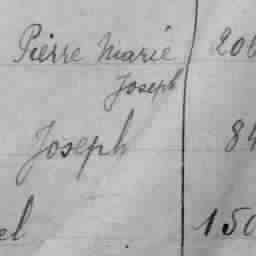 Pierre Marie 206
Joseph
Joseph 84
el 150